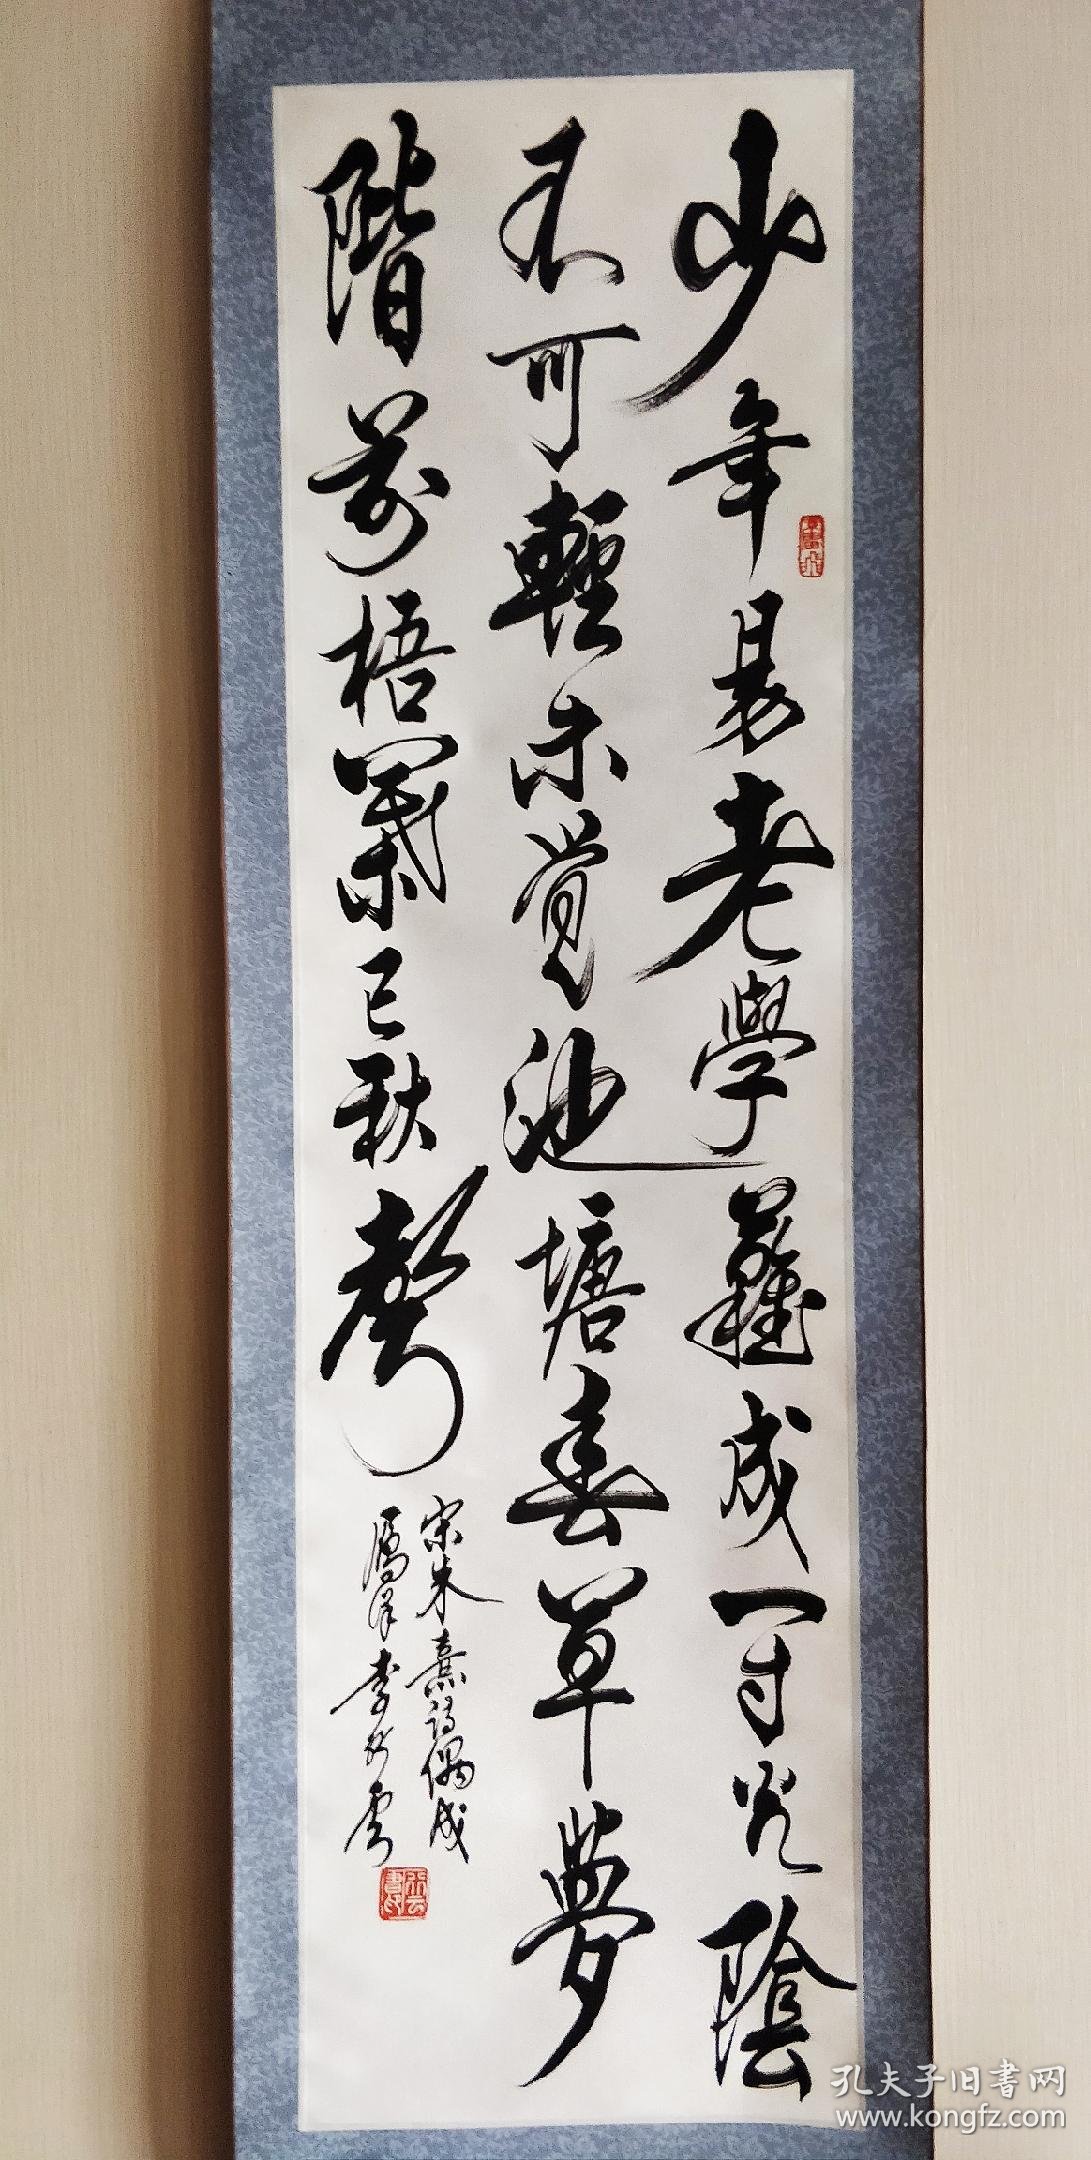 少年易老學難成一寸光陰
不可輕未覺池塘春草夢
階前梧葉已秋聲
宋朱熹詩偶成
李
孔夫子旧书网
www.kongfz.com